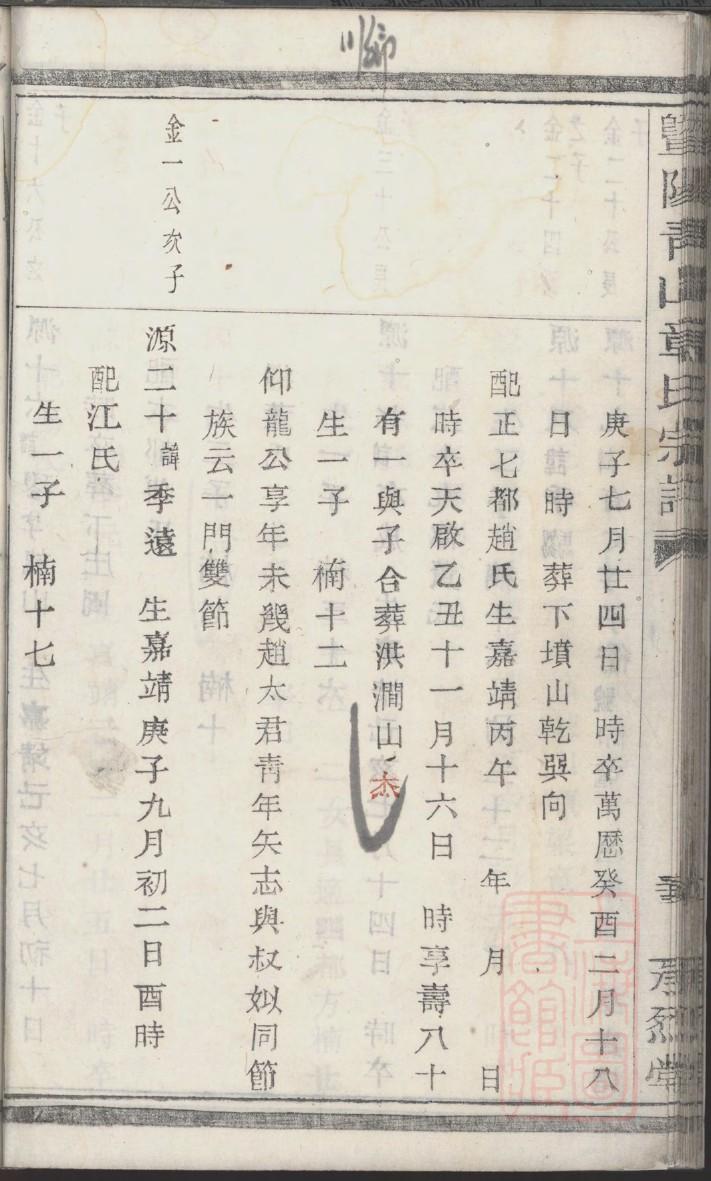 暨陽青山章氏宗譜
庚子七月廿四日　時卒萬曆癸酉二月十八
日　時　葬下墳山乾巽向
配正七都趙氏生嘉靖丙午　年　月　日
時卒天啟乙丑十一月十六日　時享壽八十
有一與子合葬洪澗山
生一子　楠十二
仰龍公享年未幾趙太君青年矢志與叔姒同節
族云一門雙節
金一公次子
源二十諱季遠　生嘉靖庚子九月初二日酉時
配江氏
生一子　楠十七